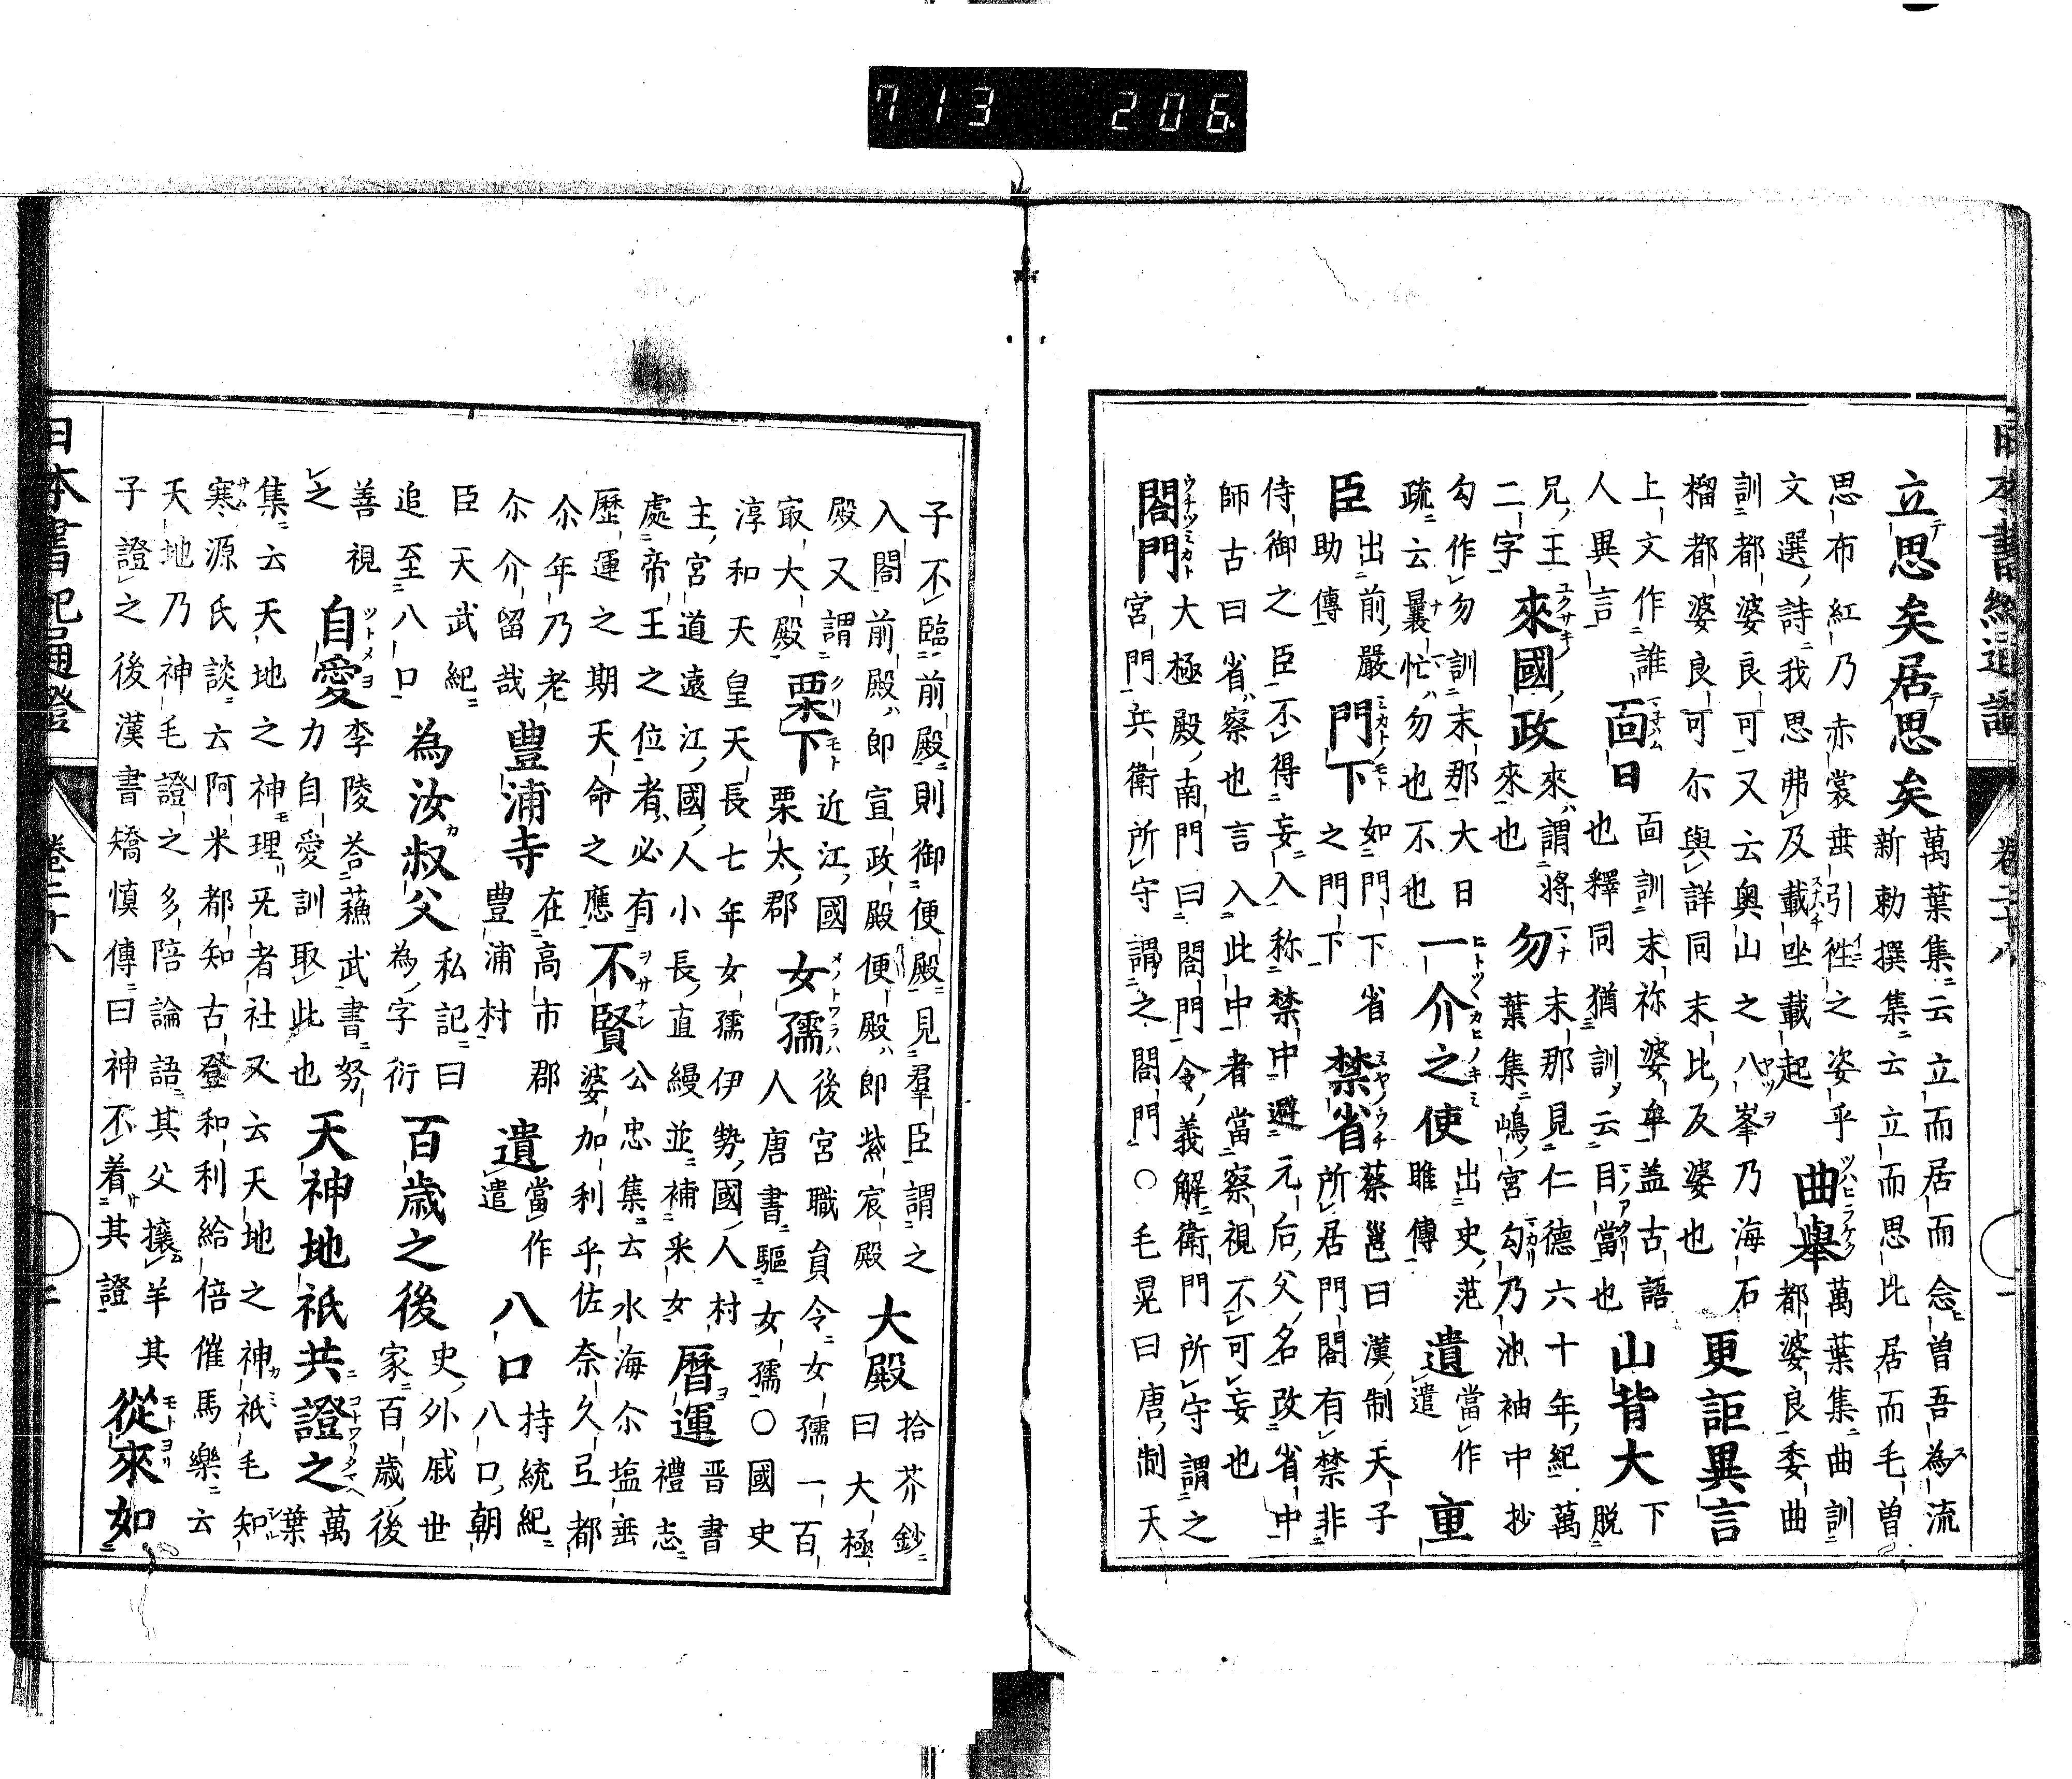 日本書紀通證
卷二十八
立思矣居思矣
萬葉集云立而居而念曽吾為流
新勅撰集云立而思比居而毛曽
思布紅乃赤裳垂引徃之姿乎
文選詩我思弗及載坐載起
曲舉
萬葉集曲訓
都婆良委曲
訓都婆良可又云奥山之八峯乃海石
榴都婆良可尓與詳同末比反婆也
更詎異言
上文作誰
人異言
面曰
面訓末祢婆牟盖古語
也釋同猶訓云目當也
山背大
下
脱
兄王
二字
來國政
來謂將
來也
勿
末那見仁德六十年紀萬
葉集嶋宮勾乃池袖中抄
勾作勿訓末那大日
疏云曩忙勿也不也
一介之使
出史范
雎傳
遺
當作
遣
重
臣
出前嚴
助傳
門下
如門下省
之門下
禁省
蔡邕曰漢制天子
所居門閤有禁非
侍御之臣不得妄入称禁中避元后父名改省中
師古曰省察也言入此中者當察視不可妄也
閤門
大極殿南門曰閤門令義解衛門所守謂之
宮門兵衛所守謂之閤門○毛晃曰唐制天
子不臨前殿則御便殿見羣臣謂之
入閤前殿即宣政殿便殿即紫宸殿
大殿
拾芥鈔
曰大極
殿又謂
㝡大殿
栗下
近江國
栗太郡
女孺
後宮職員令女孺一百
人唐書驅女孺○國史
淳和天皇天長七年女孺伊勢國人村
主宮道遠江國人小長直縵並補釆女
暦運
晋書
禮志
處帝王之位者必有
歷運之期天命之應
不賢
公忠集云水海尓塩垂
婆加利乎佐奈久弖都
尓年乃老
尓介留哉
豊浦寺
在高市郡
豊浦村
遺
當作
遣
八口
持統紀
八口朝
臣天武紀
追至八口
為汝叔父
私記曰
為字衍
百歳之後
史外戚世
家百歳後
善視
之
自愛
李陵荅蘓武書努
力自愛訓取此也
天神地祇共證之
萬
葉
集云天地之神理无者社又云天地之神祇毛知
寒源氏談云阿米都知古登和利給倍催馬樂云
天地乃神毛證之多陪論語其父攘羊其
子證之後漢書矯慎傳曰神不着其證
從來如
日本書紀通證
卷二十八
二
713 206